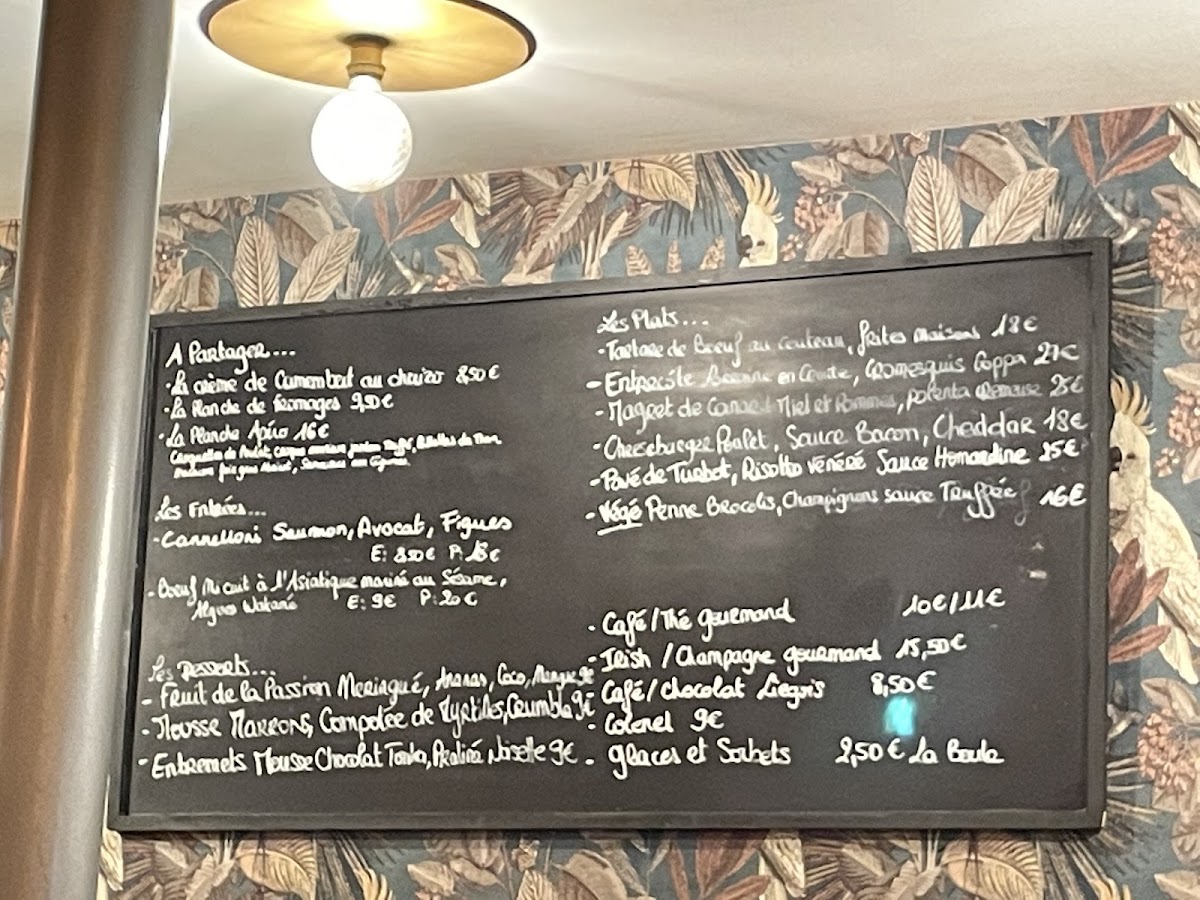 A Partager...
- La crème de Camembert au chorizo 8,50€
- La Planche de fromages 9,50€
- La Planche Apéro 16€
Les Entrées...
- Cannelloni Saumon, Avocat, Figues
E: 8,50€ P: 18€
- Boeuf Mi cuit à l'Asiatique mariné au Sésame,
Algues Wakamé E: 9€ P: 20€
Les Desserts...
- Fruit de la Passion Meringué, Ananas, Coco, Mangue 9€
- Mousse Marrons, Compotée de Myrtilles, Crumble 9€
- Entremets Mousse Chocolat Tonka, Praliné Noisette 9€
Les Plats...
- Tartare de Boeuf au Couteau, frites maisons 18€
- Entrecôte en Croûte, Cromesquis Coppa 27€
- Magret de Canard Miel et Pommes, polenta crémeuse 25€
- Cheeseburger Poulet, Sauce Bacon, Cheddar 18€
- Pavé de Turbot, Risotto Vénéré Sauce Homardine 25€
- Végé Penne Brocolis, Champignons sauce Truffée 16€
- Café/Thé gourmand 10€/11€
- Irish / Champagne gourmand 15,50€
- Café/chocolat Liégeois 8,50€
- Colonel 9€
- glaces et Sorbets 2,50€ La Boule